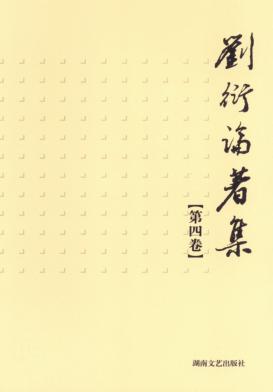 劉衍論著集
【第四卷】
湖南文艺出版社